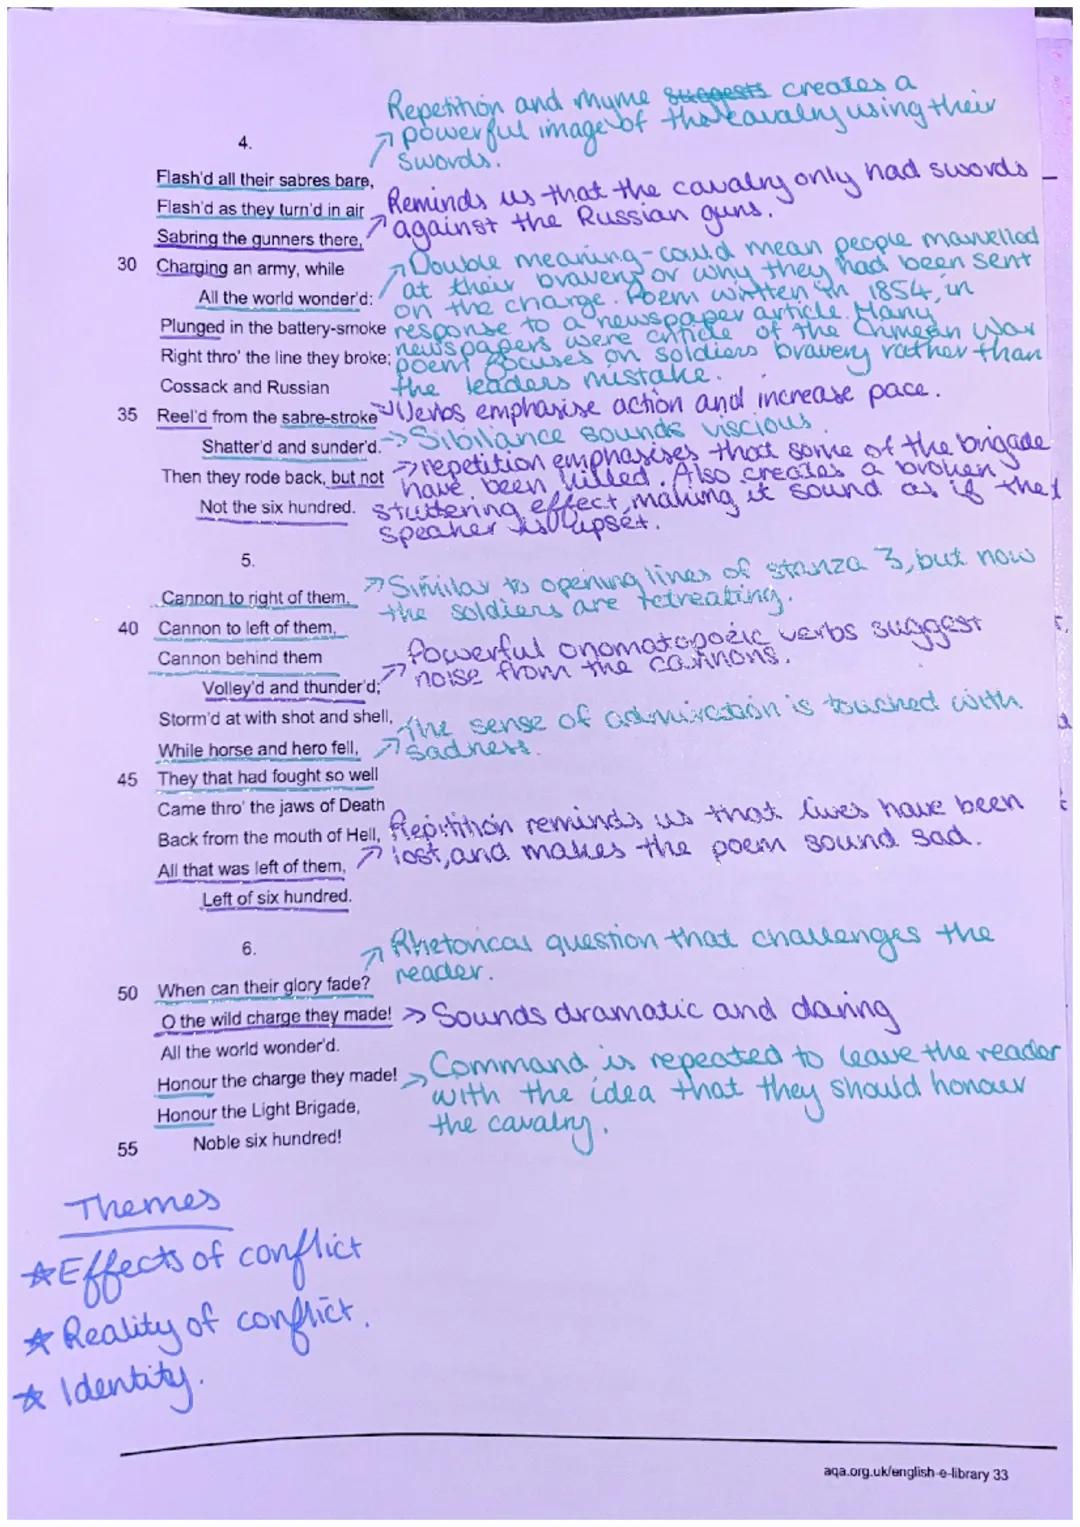 Repetition and rhyme suggests creates a
powerful image of the cavalry using their
swords.
4.
Flash'd all their sabres bare,
Flash'd as they turn'd in air
Sabring the gunners there,
Reminds us that the cavalry only had swords
against the Russian guns.
30 Charging an army, while
All the world wonder'd:
Plunged in the battery-smoke
Right thro' the line they broke;
Cossack and Russian
Double meaning - could mean people marvelled
at their bravery or why they had been sent
on the charge. Poem written in 1854, in
response to a newspaper article. Many
newspapers were critical of the Crimean War
poem focuses on soldiers bravery rather than
the leaders mistake.
35 Reel'd from the sabre-stroke
Verbs emphasise action and increase pace.
Shatter'd and sunder'd.
Sibilance sounds viscious.
Then they rode back, but not
Not the six hundred.
repetition emphasises that some of the brigade
have been killed. Also creates a broken
stuttering effect, making it sound as if the
speaker is upset.
5.
Cannon to right of them,
Similar to opening lines of stanza 3, but now
the soldiers are retreating.
40 Cannon to left of them,
Cannon behind them
Volley'd and thunder'd;
Powerful onomatopoeic verbs suggest
noise from the cannons.
Storm'd at with shot and shell,
While horse and hero fell,
The sense of admiration is touched with
sadness.
45 They that had fought so well
Came thro' the jaws of Death
Back from the mouth of Hell,
All that was left of them,
Left of six hundred.
Repitition reminds us that lives have been
lost, and makes the poem sound sad.
6.
Rhetorical question that challenges the
reader.
50 When can their glory fade?
O the wild charge they made!
Sounds dramatic and daring
All the world wonder'd.
Honour the charge they made!
Honour the Light Brigade,
55 Noble six hundred!
Command is repeated to leave the reader
with the idea that they should honour
the cavalry.
Themes
Effects of conflict
Reality of conflict.
Identity.
aqa.org.uk/english-e-library 33